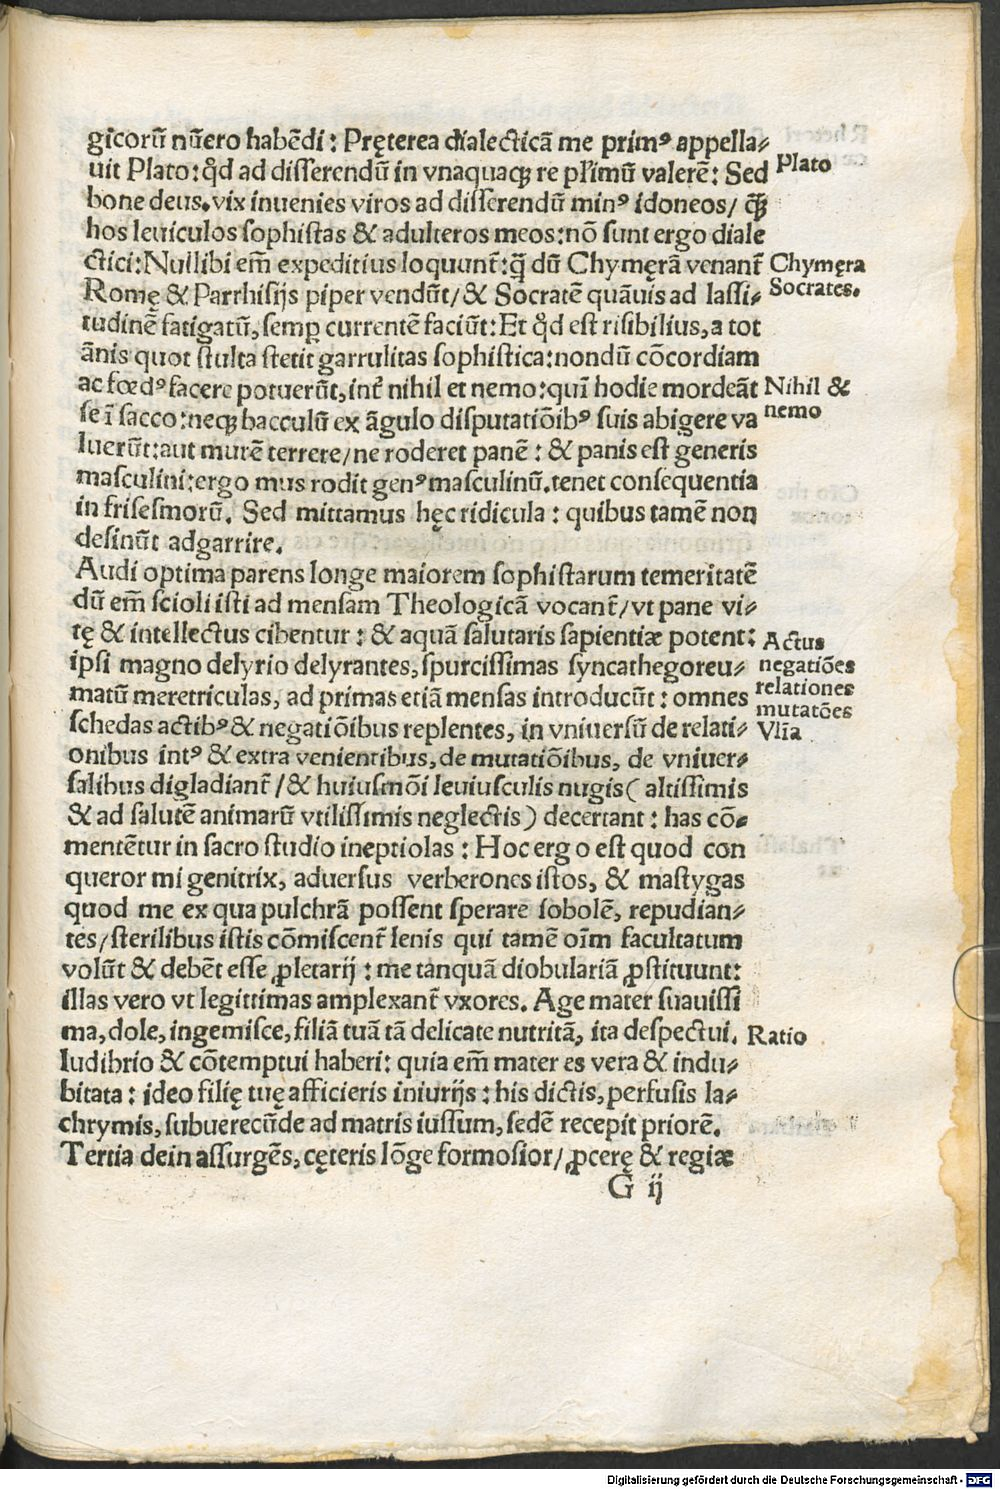 gicorū nūero habēdi: Pręterea dialecticā me primꝰ appella⸗
uit Plato: qd̄ ad disserendū in vnaquaqꝫ re plīmū valerē: Sed
Plato
bone deus. vix inuenies viros ad disserendū minꝰ idoneos/ q̄ꝫ
hos leuiculos sophistas & adulteros meos: nō sunt ergo diale
ctici: Nullibi em̄ expeditius loquunt̄: q̄ dū Chymęrā venant̄
Chymęra
Romę & Parrhisijs piper vendūt/ & Socratē quāuis ad lassi⸗
Socrates.
tudinē fatigatū, semꝑ currentē faciūt: Et qd̄ est risibilius, a tot
ānis quot stulta stetit garrulitas sophistica: nondū cōcordiam
ac fœdꝰ facere potuerūt, int̄ nihil et nemo: qui hodie mordeāt
Nihil &
nemo
se ī sacco: neqꝫ bacculū ex āgulo disputatiōibꝰ suis abigere va
luerūt: aut murē terrere/ ne roderet panē: & panis est generis
masculini: ergo mus rodit genꝰ masculinū. tenet consequentia
in frisesmorū. Sed mittamus hęc ridicula: quibus tamē non
desinūt adgarrire.
Audi optima parens longe maiorem sophistarum temeritatē
dū em̄ scioli isti ad mensam Theologicā vocant̄/ vt pane vi⸗
tę & intellectus cibentur: & aquā salutaris sapientiæ potent:
Actus
ipsi magno delyrio delyrantes, spurcissimas syncathegoreu⸗
negatiōes
matū meretriculas, ad primas etiā mensas introducūt: omnes
relationes
mutatōes
schedas actibꝰ & negatiōibus replentes, in vniuersū de relati⸗
Vlīa
onibus intꝰ & extra venientibus, de mutatiōibus, de vniuer⸗
salibus digladiant̄/ & huiusmōi leuiusculis nugis ( altissimis
& ad salutē animarū vtilissimis neglectis ) decertant: has cō⸗
mentētur in sacro studio ineptiolas: Hoc ergo est quod con
queror mi genitrix, aduersus verberones istos, & mastygas
quod me ex qua pulchrā possent sperare sobolē, repudian⸗
tes/ sterilibus istis cōmiscent̄ lenis qui tamē oīm facultatum
volūt & debēt esse ꝓletarij: me tanquā diobulariā ꝓstituunt:
illas vero vt legittimas amplexant̄ vxores. Age mater suauissi
ma, dole, ingemisce, filiā tuā tā delicate nutritā, ita despectui.
Ratio
ludibrio & cōtemptui haberi: quia em̄ mater es vera & indu⸗
bitata: ideo filię tuę afficieris iniurijs: his dictis, perfusis la⸗
chrymis, subuerecūde ad matris iussum, sedē recepit priorē.
Tertia dein assurgēs, cęteris lōge formosior/ ꝓcerę & regiæ
G ij
Digitalisierung gefördert durch die Deutsche Forschungsgemeinschaft - DFG